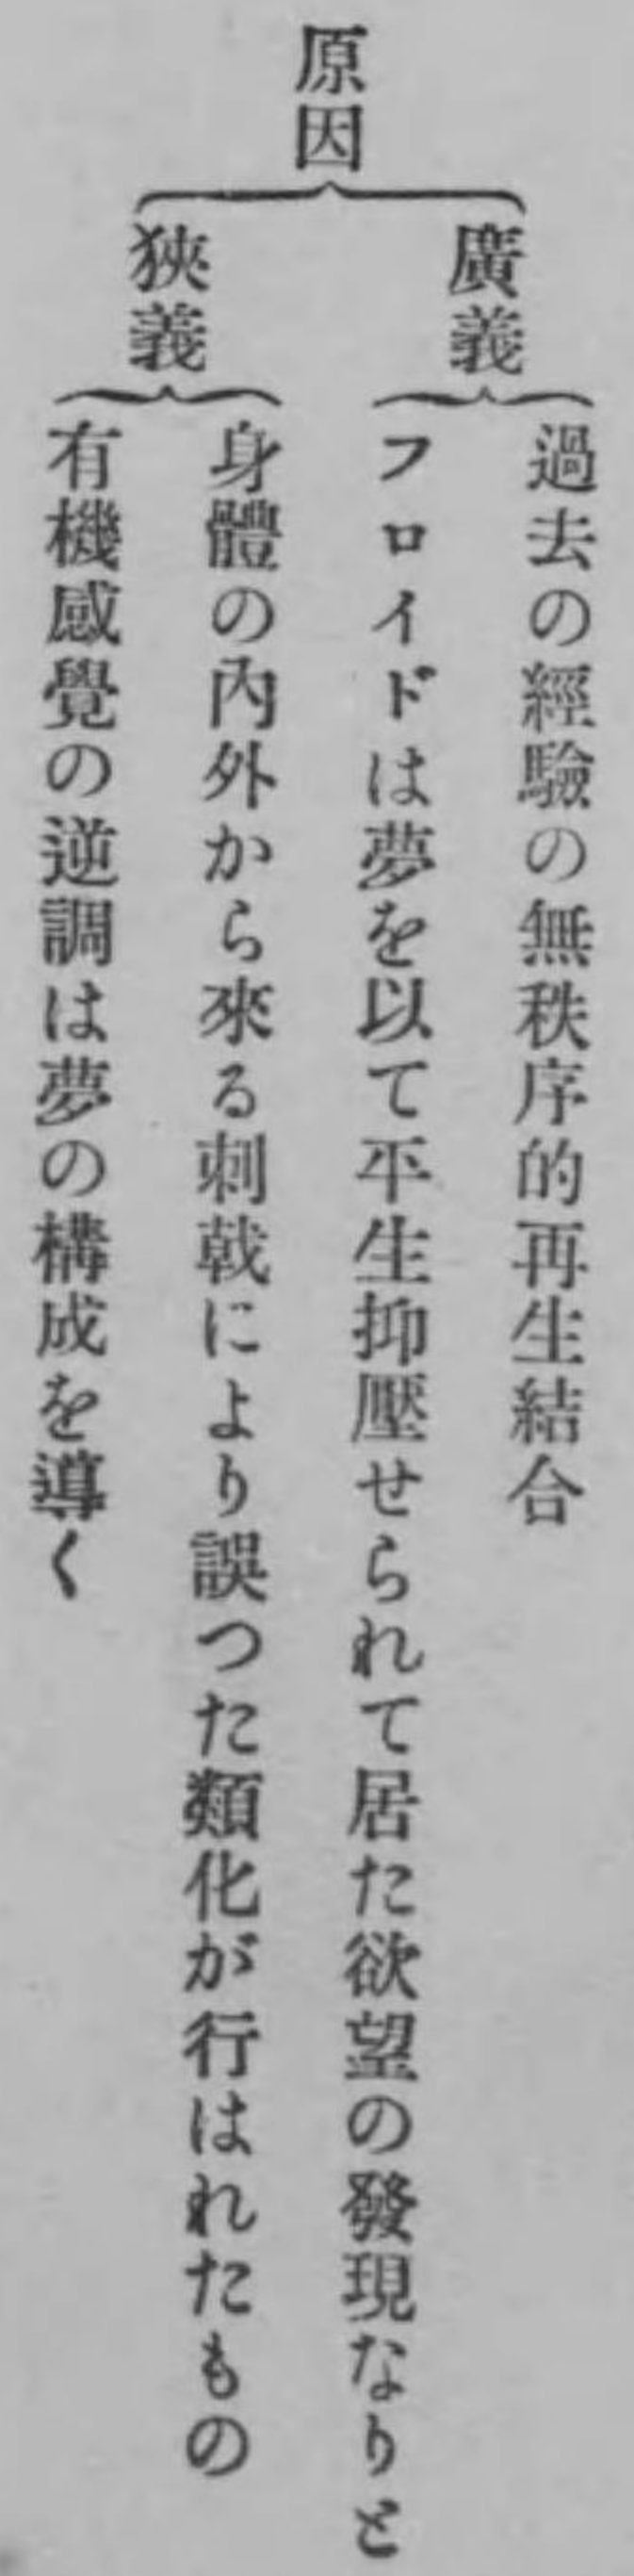 原因
廣義
過去の經驗の無秩序的再生結合
フロイドは夢を以て平生抑壓せられて居た欲望の發現なりと
狹義
身體の內外から來る刺戟により誤つた類化が行はれたもの
有機感覺の逆調は夢の構成を導く